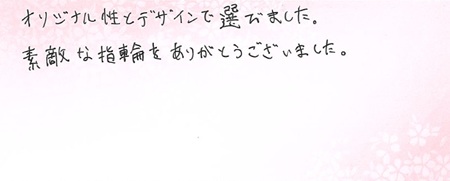 オリジナル性とデザインで選びました。
素敵な指輪をありがとうございました。